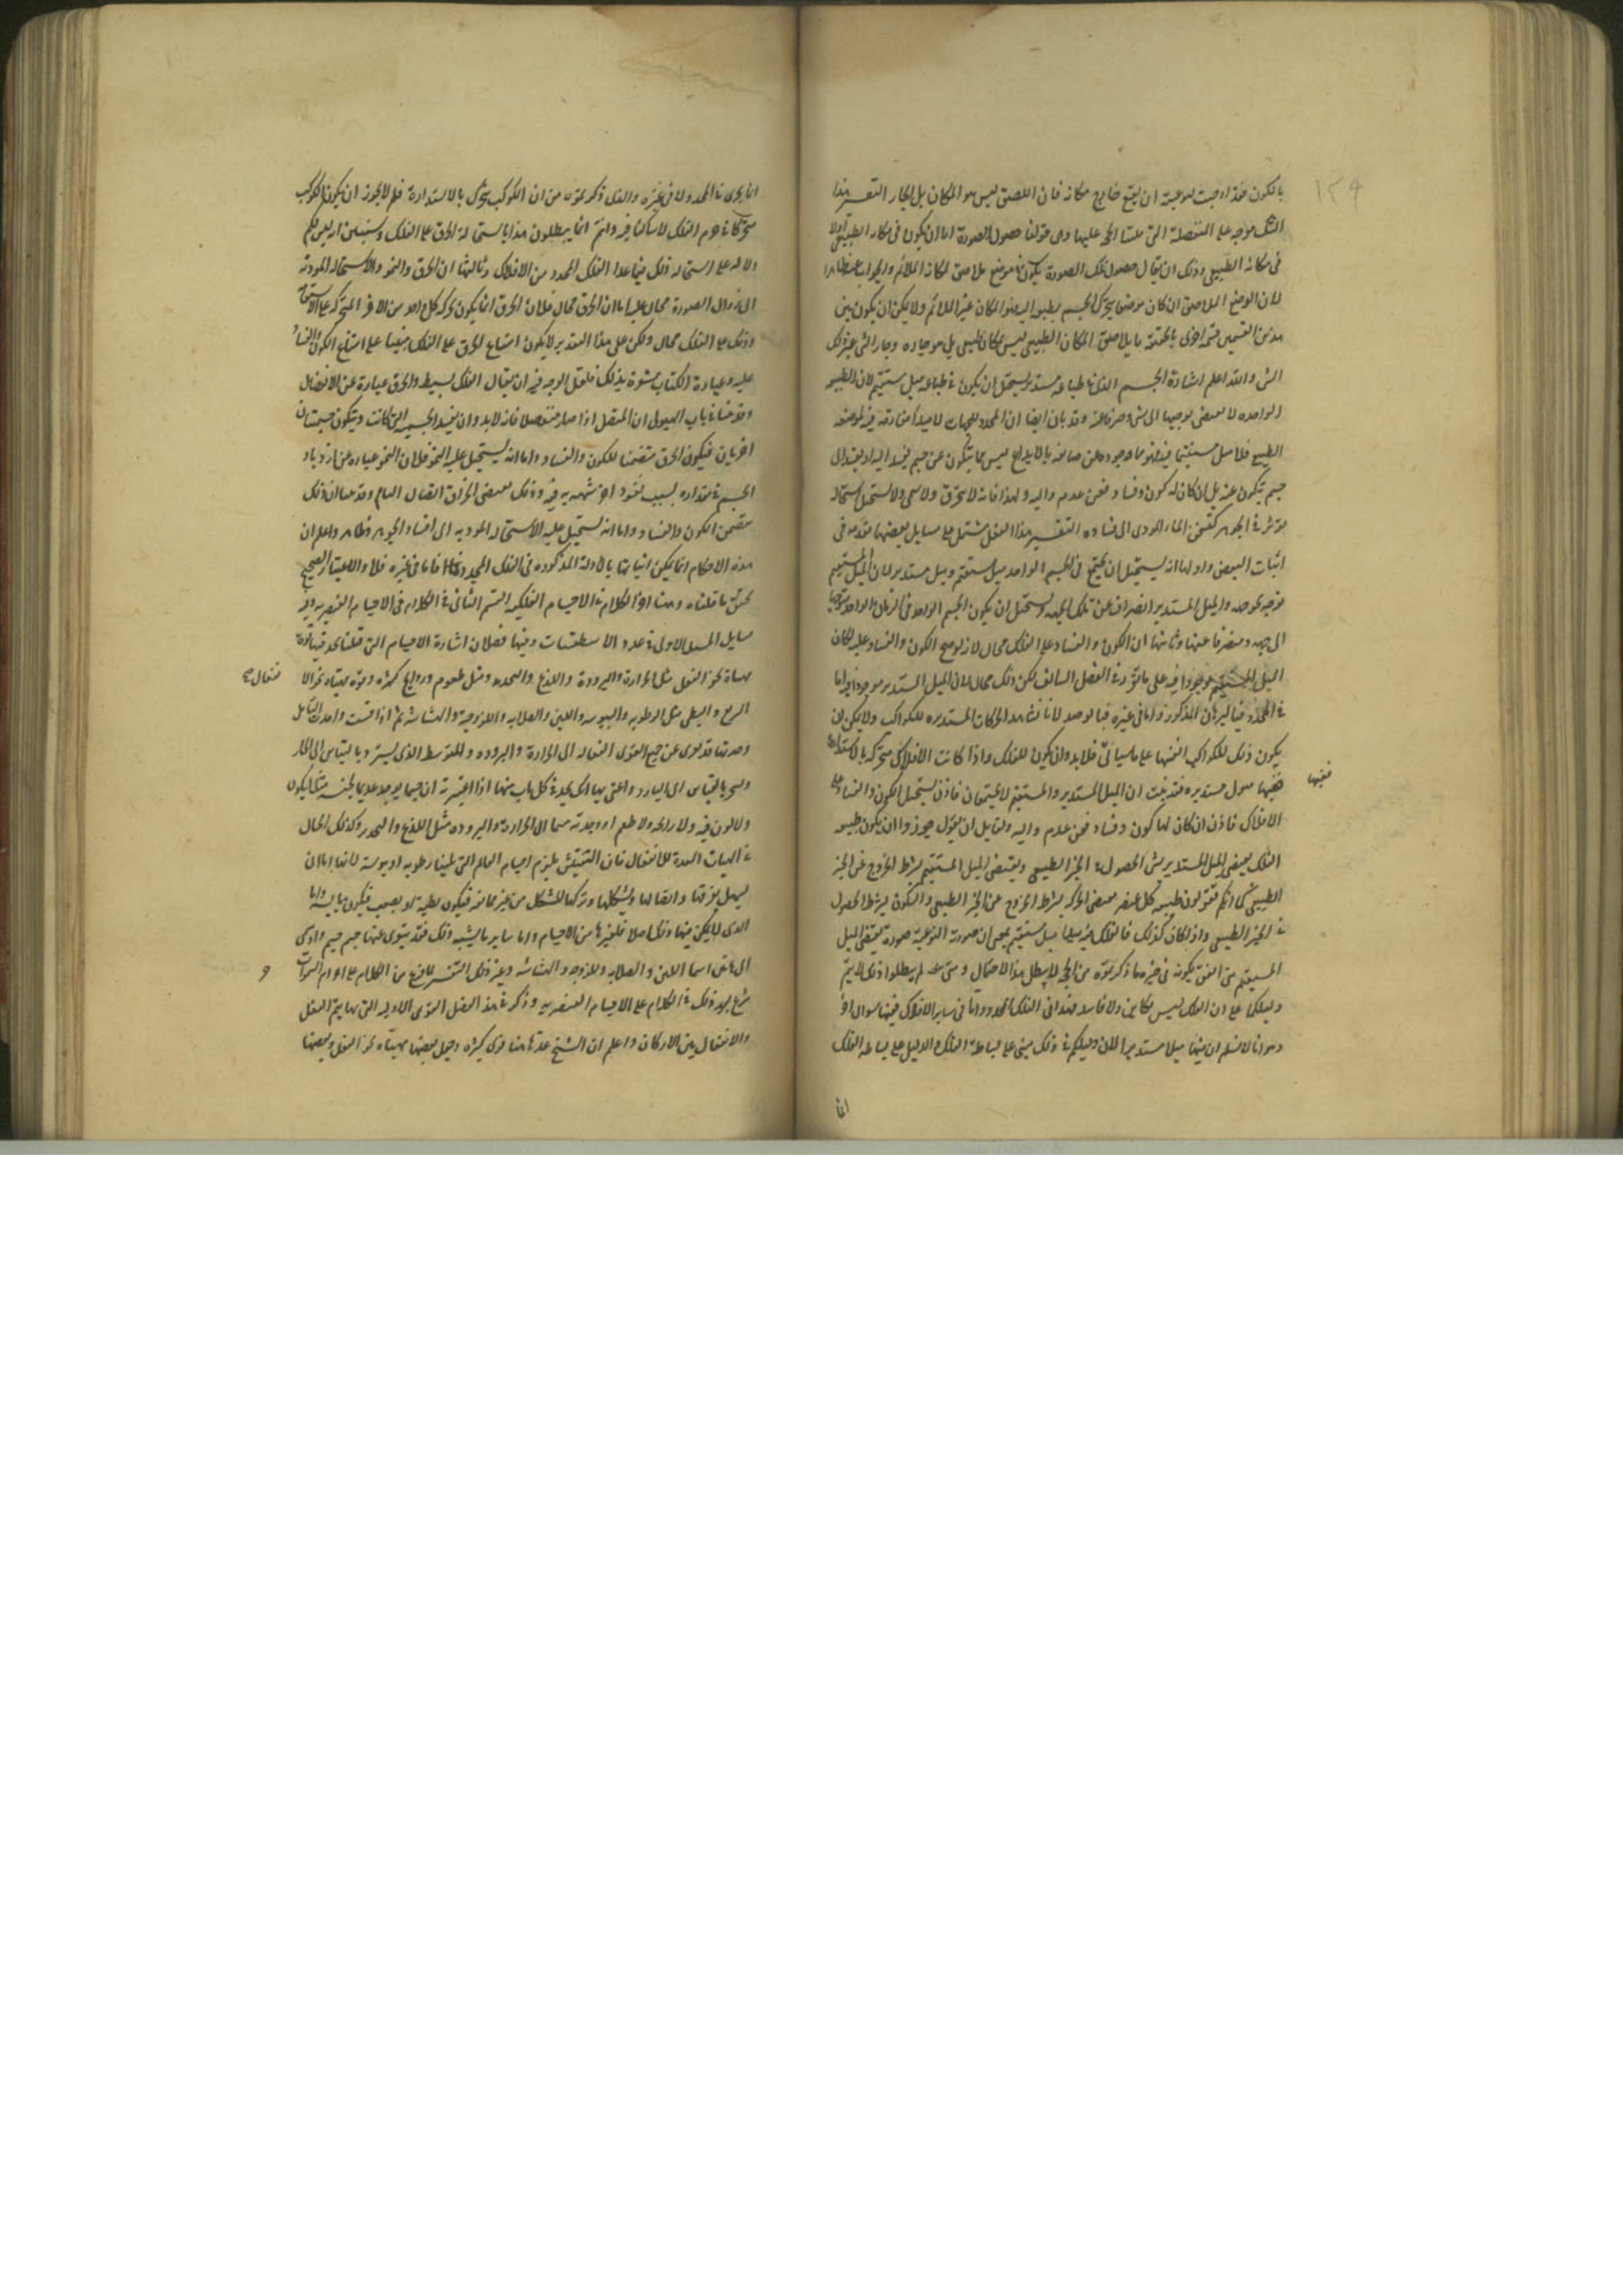 ١٢٩
بالكون فقد اوجبت لنوعيته ان يقع خارج مكانه فان اللصق ليس هو المكان بل الجار التفسير هذا
الشك موجه على المنفصلة التي عليها وهى قولنا حصول الصورة اما ان يكون فى مكان الطبيعى اولا
فى مكانه الطبيعى وذلك ان يقال حصول تلك الصورة يكون فى موضع ملاصق لمكانه الملائم والجواب
لان الموضع الملاصق ان كان موضعا يتحرك الجسم بطبعه اليه فهو المكان غير الملائم ولا يمكن ان يكون بين
هذين القسمين قسمة اخرى ما يلاصق المكان الطبيعى ليس بمكان طبيعى بل هو جاره وجار الشى غير ذلك
الشى والله اعلم اشارة الجسم الذى فى طباعه ميل مستدير يستحيل ان يكون فى طباعه ميل مستقيم لان الطبيعة
الواحدة لا تقتضى توجيها الى شى وصرفا عنه وقد بان ايضا ان المحدد للجهات لا مبدا مفارقة فيه لموضعه
الطبيعى فلا ميل مستقيما فيه فهو مما وجوده عن صانعه بالابداع ليس مما يتكون عن جسم يفسد اليه او يفسد الى
جسم يتكون عنه بل ان كان له كون وفساد فعن عدم واليه ولهذا فانه لا ينخرق ولا ينمى ولا يستحيل استحالة
تؤثر فى الجوهر كتسخن الماء المودى الى فساده التفسير هذا الفصل مشتمل على مسايل بعضها مقدمة فى
اثبات البعض واولها انه يستحيل ان يجتمع فى الجسم الواحد ميل مستقيم وميل مستدير لان الميل المستقيم
توجه لجهة والميل المستدير انصراف عن تلك الجهة ويستحيل ان يكون الجسم الواحد فى الزمان الواحد متوجها
الى جهة ومنصرفا عنها وثانيها ان الكون والفساد على الفلك محال لانه لو صح الكون والفساد عليه لكان
الميل المستقيم موجودا فيه على ما تقرر فى الفصل السالف لكن ذلك محال لان الميل المستدير موجود فيه اما
فى المحدد فبالبرهان المذكور واما فى غيره فبالرصد لانا نشاهد الحركات المستديرة للكواكب ولا يمكن ان
يكون ذلك للكواكب انفسها على ما سياتى فلابد وان يكون للفلك واذا كانت الافلاك متحركة بالاستدارة
ففيها ميول مستديرة فقد ثبت ان الميل المستدير والمستقيم لا يجتمعان فاذن يستحيل الكون والفساد على
ففيها
الافلاك فاذن ان كان لها كون وفساد فعن عدم واليه ولقايل ان يقول جوزوا ان يكون طبيعة
الفلك يقتضى الميل المستدير بشرط الحصول فى الحيز الطبيعى ويقتضى الميل المستقيم بشرط الخروج عن الحيز
الطبيعى كما انكم تقولون طبيعة كل عنصر يقتضى الحركة بشرط الخروج عن الحيز الطبيعى والسكون بشرط الحصول
فى الحيز الطبيعى واذا كان كذلك فالفلك فيه ميل مستقيم بمعنى ان صورته النوعية صورة تقتضى الميل
المستقيم متى اتفق تكونه فى حيز وما ذكرتموه من الحجة لا يبطل هذا الاحتمال ومتى لم يبطلوا ذلك لا يتم
دليلكم على ان الفلك ليس بكاين ولا فاسد فهذا فى الفلك المحدد واما فى ساير الافلاك ففيها سوال اخر
وهو انا لا نسلم ان فيها ميلا مستديرا لان دليلكم فى ذلك مبنى على بساطة الفلك والدليل على بساطة الفلك
انما
انما يجرى فى المحدد ولا فى غيره والذى ذكرتموه من ان الكوكب يتحرك بالاستدارة فلم لا يجوز ان يكون الكوكب
متحركا فى جرم الفلك لا ساكنا فيه وانتم انما يبطلون هذا باستحالة الخرق على الفلك وسنبين ان ليس لكم
دلالة على استحالة ذلك فيما عدا الفلك المحدد من الافلاك وثالثها ان الخرق والنمو والاستحالة المودية
الى زوال الصورة محال عليها اما ان الخرق محال فلان الخرق انما يكون لحركة كل واحد من الاخر المتحرك على الاستقامة
وذلك على الفلك محال ولكن على هذا التقدير لا يكون امتناع الخرق على الفلك مبنيا على امتناع الكون والفساد
عليه وعبارة الكتاب مشعرة بذلك فلعل الوجه فيه ان يقال الفلك بسيط والخرق عبارة عن الانفصال
وقد بينا فى باب الهيولى ان المتصل اذا صار منفصلا فانه لابد وان يفسد الجسمية التى كانت ويتكون جسميتان
اخريان فيكون الخرق متضمنا للكون والفساد واما انه يستحيل عليه النمو فلان النمو عبارة عن ازدياد
الجسم فى مقداره بسبب نفوذ اخر شبيه به فيه وذلك يقتضى انخراق اتصال النامى وقد بينا ان ذلك
يتضمن الكون والفساد واما انه يستحيل عليه الاستحالة المودية الى افساد الجوهر فظاهر واعلم ان
هذه الاحكام انما يمكن اثباتها بالادلة المذكورة فى الفلك المحدد فاما فى غيره فلا والاعتبار الصحيح
يحقق ما قلناه وهذا اخر الكلام فى الاجسام الفلكية القسم الثانى فى الكلام فى الاجسام العنصرية وفيه
مسايل المسلة الاولى فى عدد الاسطقسات وفيها فصلان اشارة الاجسام التى قبلنا نجد فيها قوى
مهياة نحو الفعل مثل الحرارة والبرودة واللذع والتخدير ومثل طعوم وروايح كثيرة وقوة مهياة نحو الا
نفعال
السريع والبطى مثل الرطوبة واليبوسة واللين والصلابة واللزوجة والهشاشة ثم اذا فتشت واجدت التامل
وجدتها قد تعرى عن جميع القوى الفعالة الى الحرارة والبرودة والمتوسط الذى يستبرد بالقياس الى الحار
ويستحر بالقياس الى البارد واعنى بهذا انك تجد فى كل باب منها اذا اعتبرته ان جسما يوجد عديما لجنسه مثلا يكون
ولا لون فيه ولا رايحة ولا طعم او وجدته منتهيا الى الحرارة والبرودة مثل اللذع والتخدير وكذلك الحال
فى الهيات المعدة للانفعال فان التفتيش يلزم اجسام العالم التى تلينا رطوبة او يبوسة لانها اما ان
يسهل تفرقها واتصالها وتشكلها وتركها للشكل من غير ممانعة فيكون رطبة او يصعب فيكون يابسة واما
الذى لا يمكن فيها ذلك اصلا فلغيرها من الاجسام واما ساير ما يشبه ذلك فقد يتعرى عنها جسم جسم وادى
الى هذين اسما اللين والصلابة واللزوجة والهشاشة وغير ذلك التفسير لما فرغ من الكلام على اجرام السموات
و
شرع بعد ذلك فى الكلام على الاجسام العنصرية وذكر فى هذا الفصل القوى الاولية التى بها يتم الفعل
والانفعال بين الاركان واعلم ان الشيخ عد هاهنا قوى كثيرة وجعل بعضها مهياة نحو الفعل وبعضها